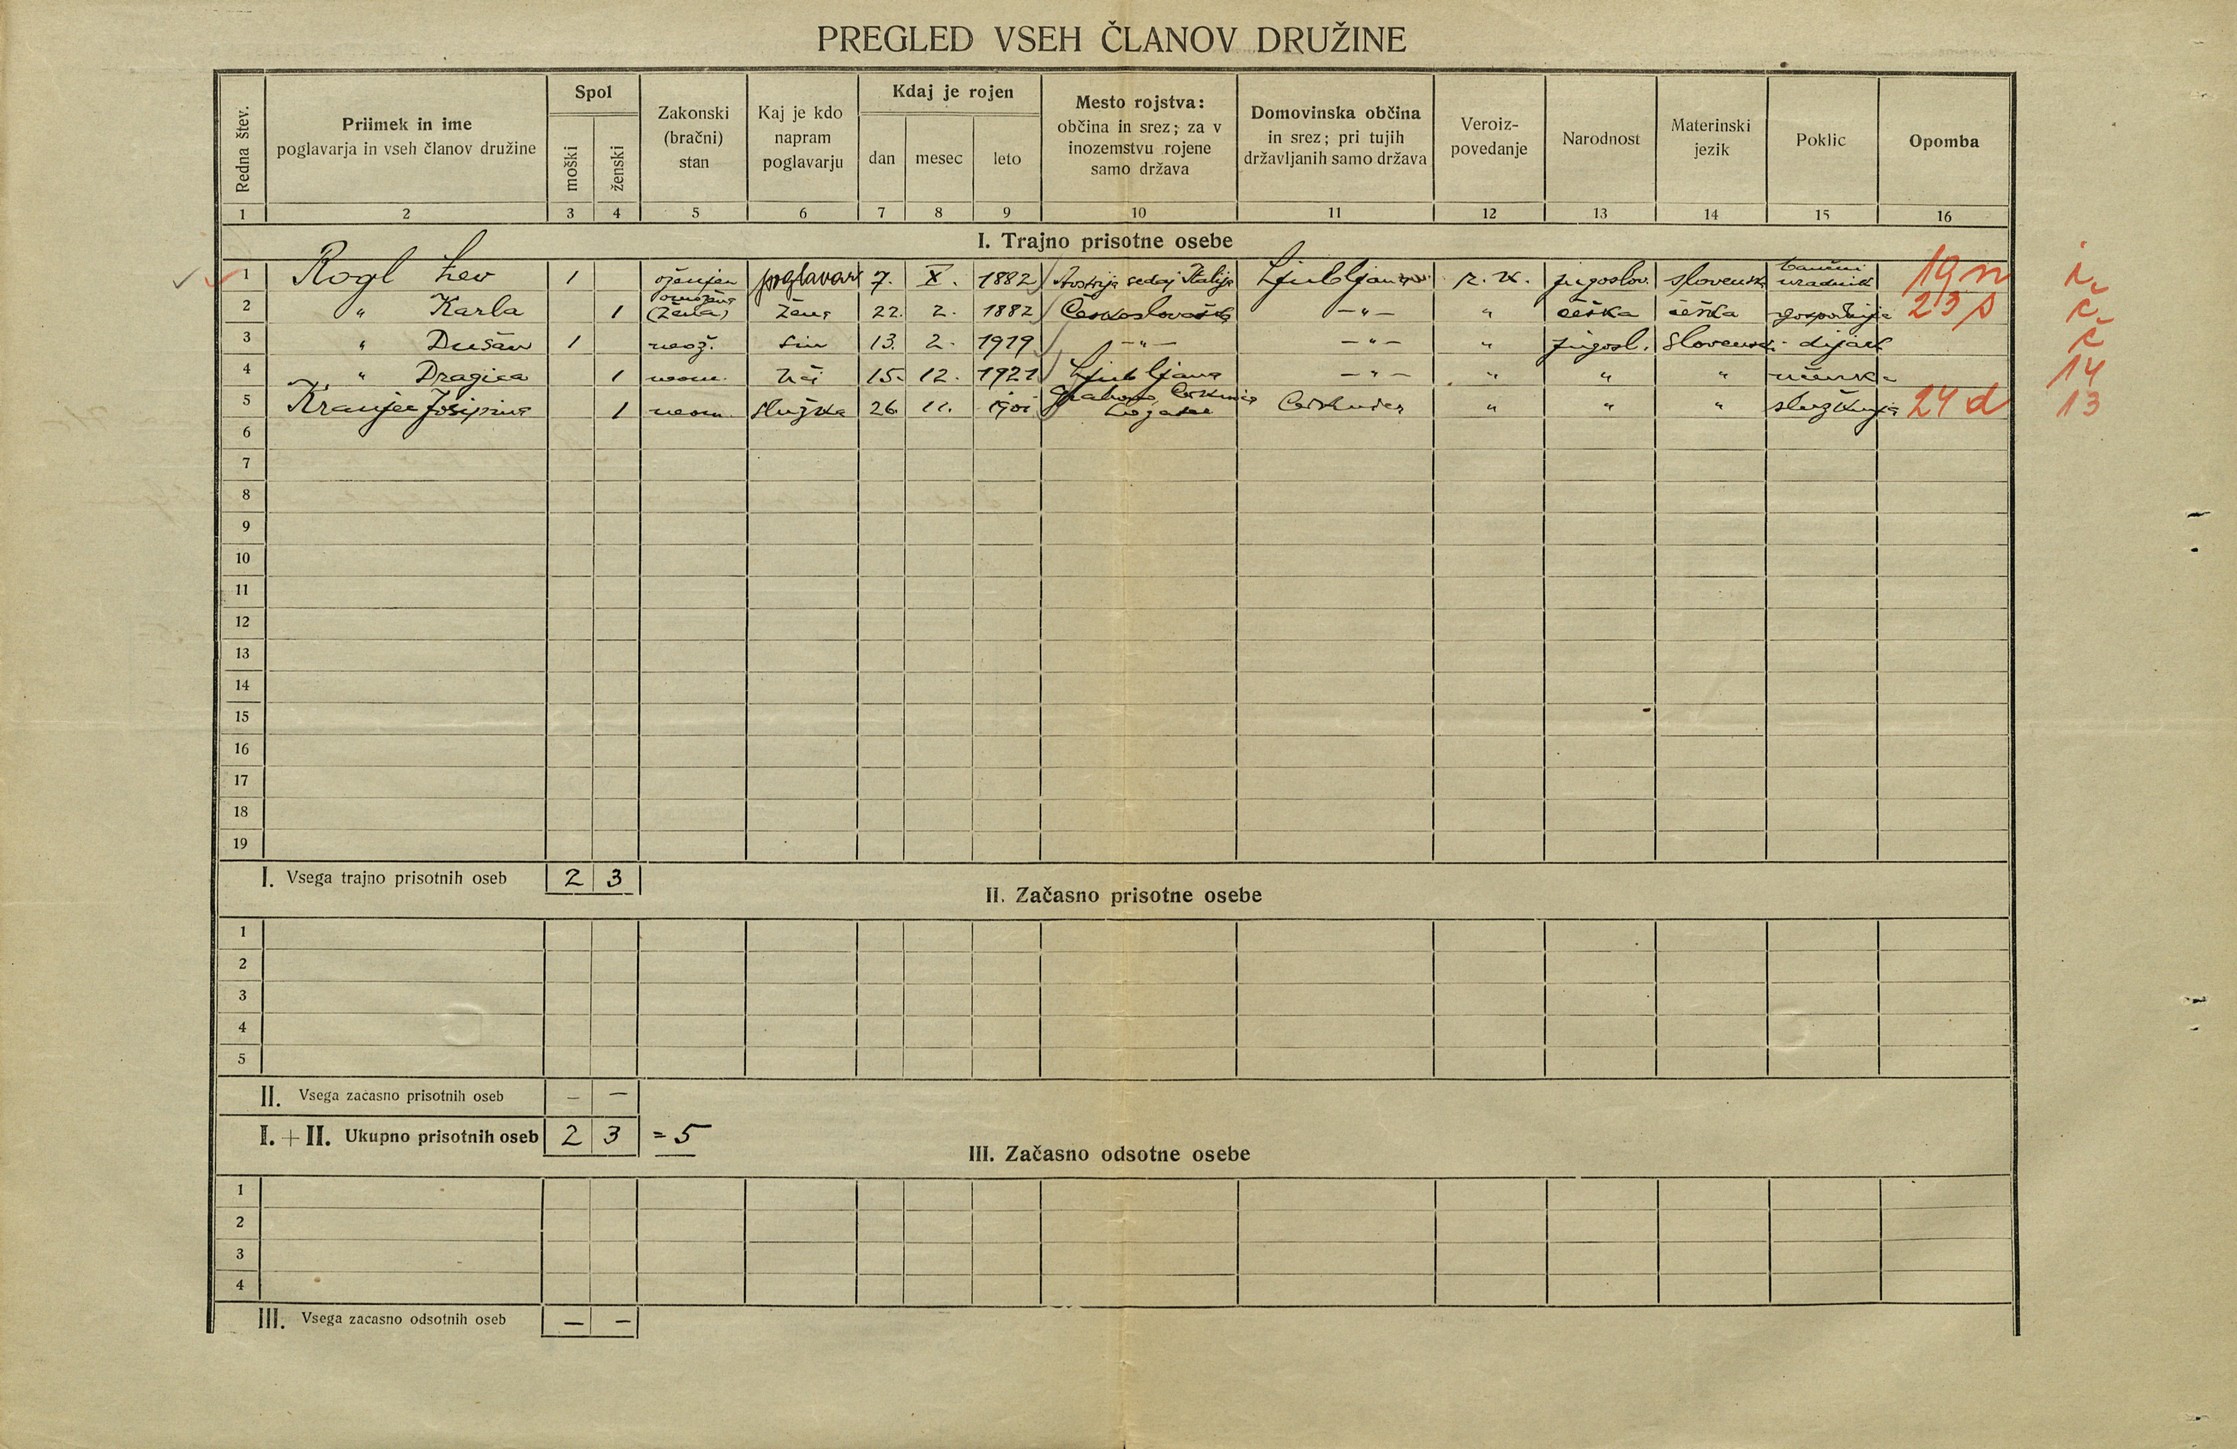 PREGLED VSEH ČLANOV DRUŽINE
Redna štev.
Priimek in ime
poglavarja in vseh članov družine
Spol
moški
ženski
Zakonski
(bračni)
stan
Kaj je kdo
napram
poglavarju
Kdaj je rojen
dan
mesec
leto
Mesto rojstva:
občina in srez; za v
inozemstvu rojene
samo država
Domovinska občina
in srez; pri tujih
državljanih samo država
Veroiz-
povedanje
Narodnost
Materinski
jezik
Poklic
Opomba
1 2 3 4 5 6 7 8 9 10 11 12 13 14 15 16
I. Trajno prisotne osebe
1 Rogl Lev 1 oženjen poglavar 7. X. 1882 Avstrija sedaj Italija Ljubljana r. k. jugoslov. slovensk bančni uradnik 19 n
2 " Karla 1 omožena (žena) žena 22. 2. 1882 Českoslovaška -"- " češka češka gospodinja 23 s
3 " Dušan 1 neož. sin 13. 2. 1919 -"- -"- " jugosl. slovensk. dijak č
4 " Dragica 1 neom. hči 15. 12. 1921 Ljubljana -"- " " " učenka 14
5 Kranjec Josipina 1 neom. služka 26. 11. 1901 Grahovo, Cerknica Logatec " " " služkinja 24 d 13
6
7
8
9
10
11
12
13
14
15
16
17
18
19
I. Vsega trajno prisotnih oseb 2 3
II. Začasno prisotne osebe
1
2
3
4
5
II. Vsega začasno prisotnih oseb – –
I. + II. Ukupno prisotnih oseb 2 3 = 5
III. Začasno odsotne osebe
1
2
3
4
III. Vsega zacasno odsotnih oseb – –